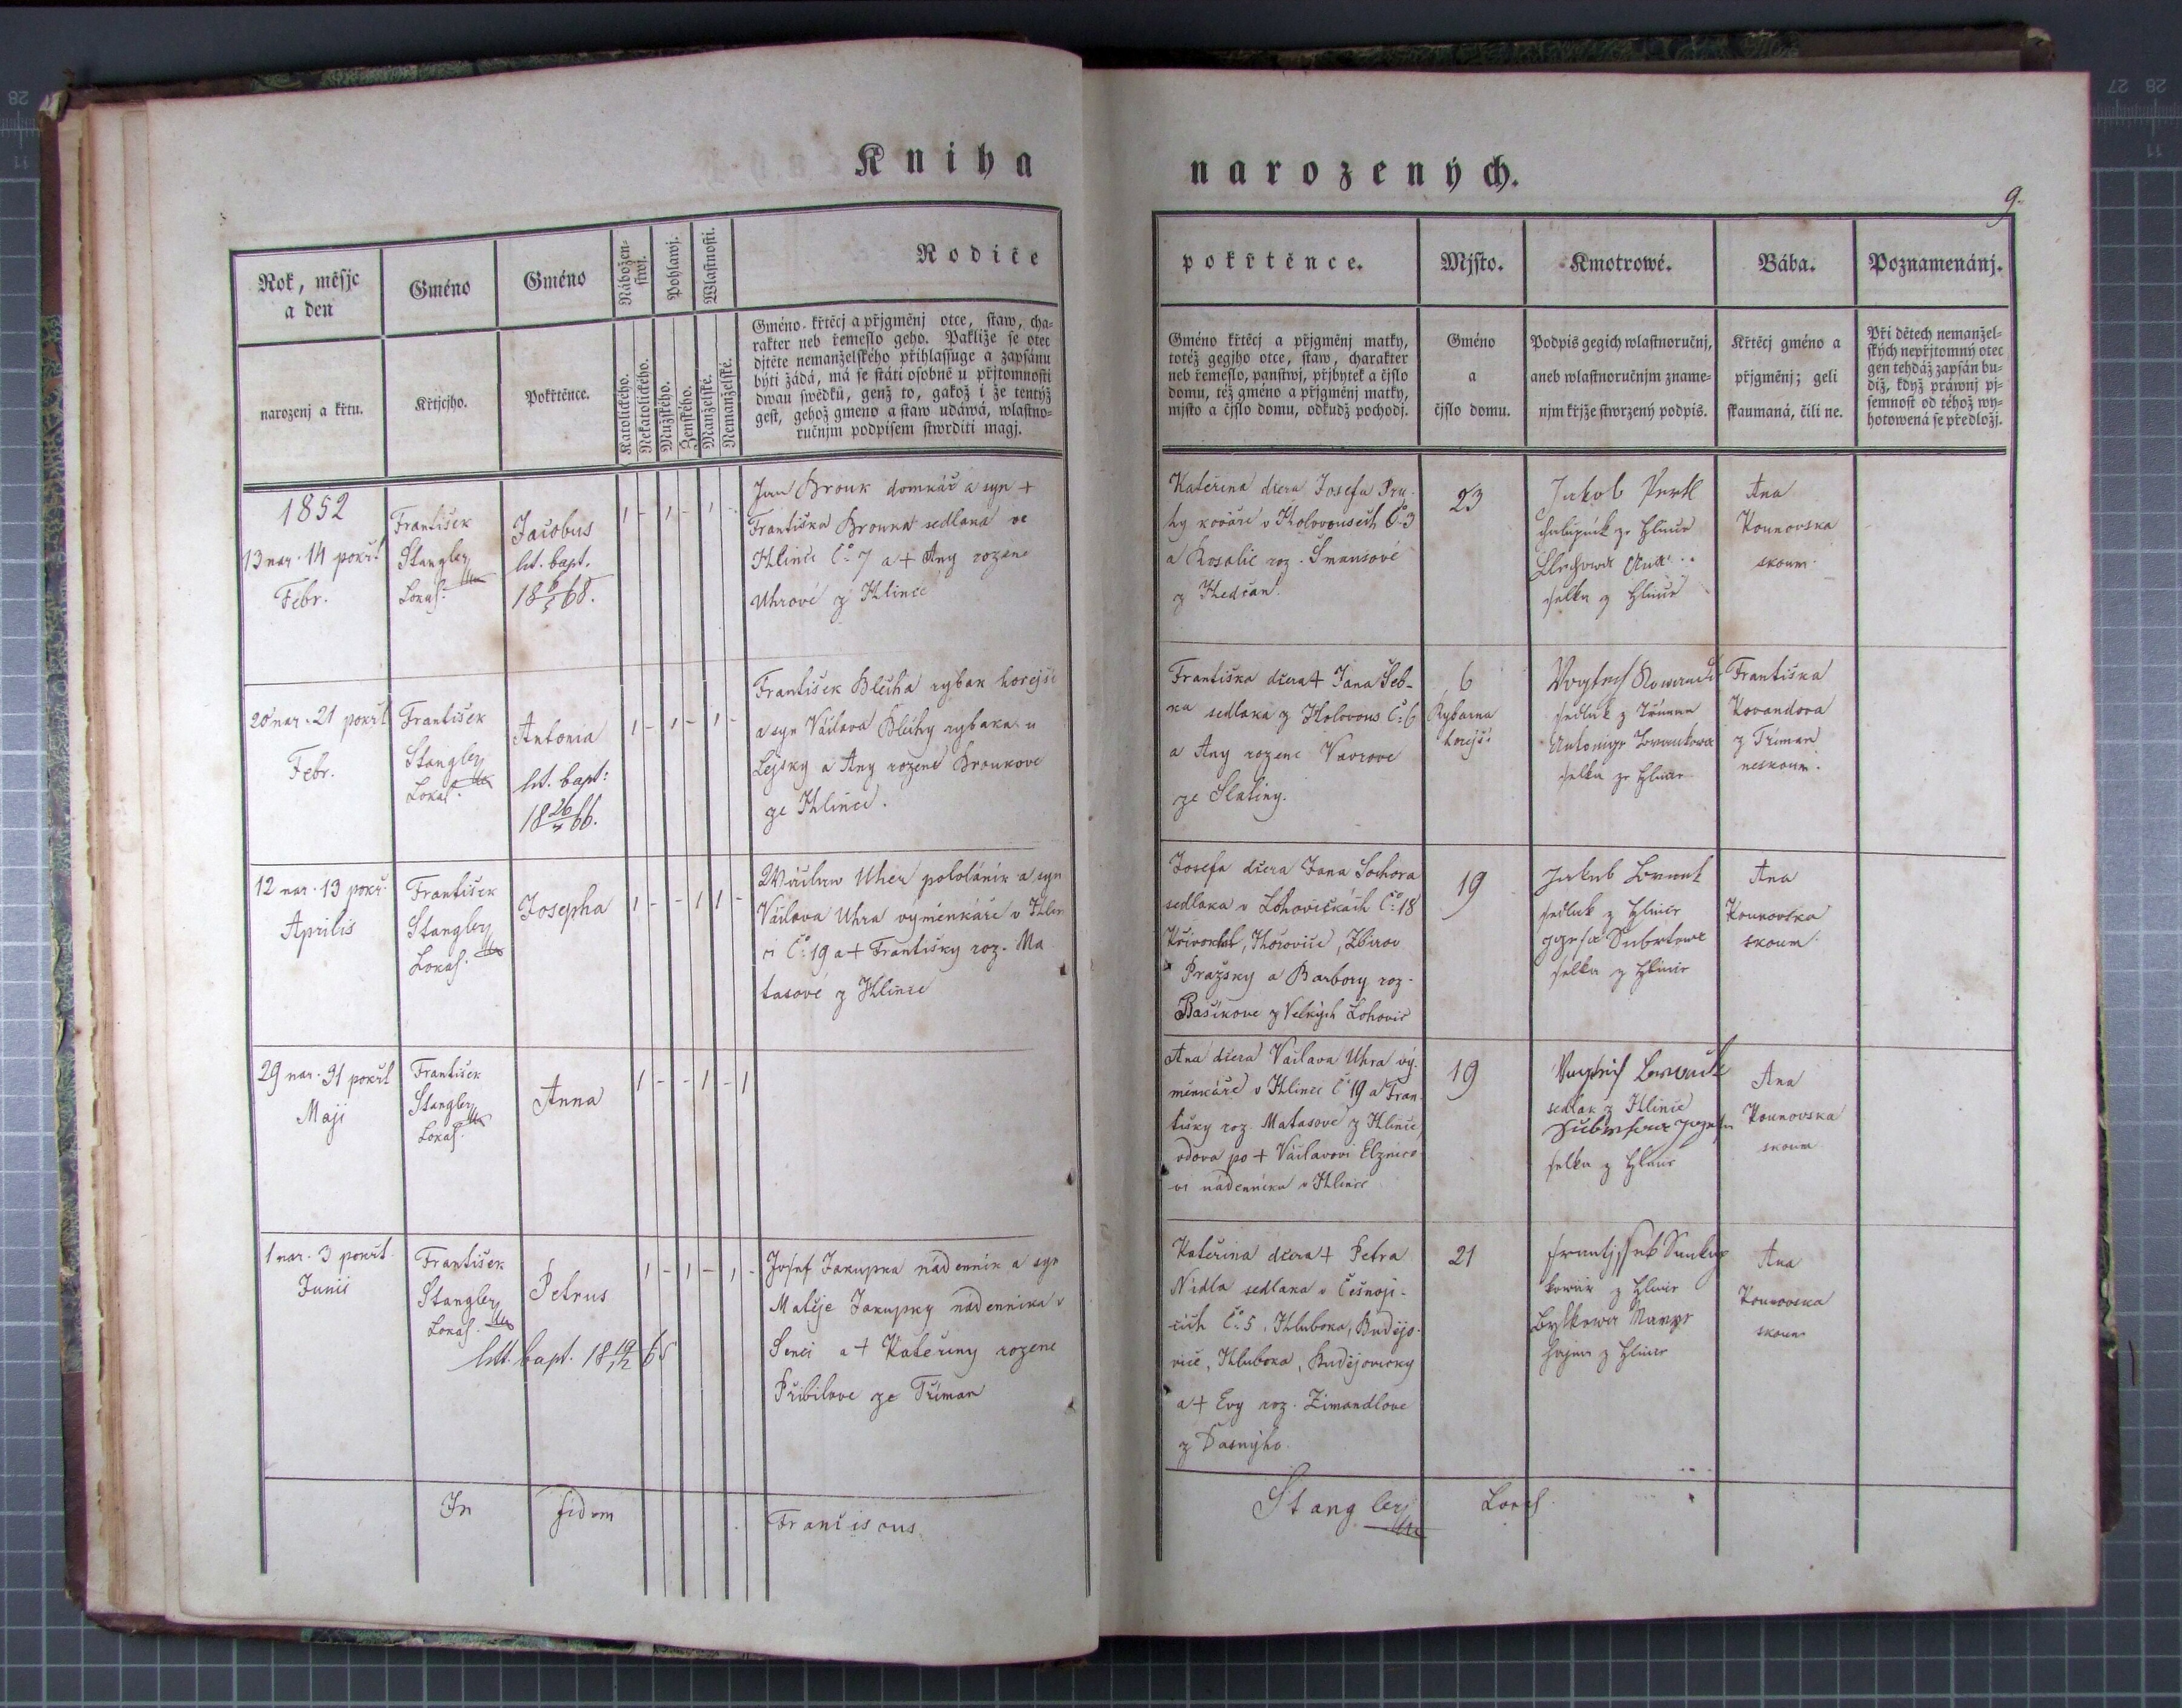 Kniha narozených.
9.
Rok, měsjc
a den
narozenj a křtu.
Gméno
Křtjcjho.
Gméno
Pokřtěnce.
Nábožen-
stwj.
Katolického.
Nekatolického.
Pohlawj.
Mužského.
Ženského.
Wlastnosti.
Manželské.
Nemanželské.
Rodiče
Gméno křtěcj a přjgměnj otce, staw, cha-
rakter neb řemeslo geho. Pakliže se otec
djtěte nemanželského přihlassuge a zapsánu
býti žádá, má se státi osobně u přjtomnosti
dwau swědků, genž to, gakož i že tentýž
gest, gehož gmeno a staw udáwá, wlastno-
ručnjm podpisem stwrditi magj.
pokřtěnce.
Gméno křtěcj a přjgměnj matky,
totéž gegjho otce, staw, charakter
neb řemeslo, panstwj, přjbytek a čjslo
domu, též gméno a přjgměnj matky,
mjsto a čjslo domu, odkudž pochodj.
Mjsto.
Gméno
a
čjslo domu.
Kmotrowé.
Podpis gegich wlastnoručnj,
aneb wlastnoručnjm zname-
njm křjže stwrzený podpis.
Bába.
Křtěcj gméno a
přjgměnj; geli
skaumaná, čili ne.
Poznamenánj.
Při dětech nemanžel-
ských nepřjtomný otec
gen tehdáž zapsán bu-
diž, když práwnj pj-
semnost od téhož wy-
hotowená se předložj.
1852
13 nar. 14 pokřt
Febr.
František
Stangley
Lokal.
Jacobus
lit. bapt.
18 6/5 68.
1 - 1 - 1 -
Jan Brouk domkář a syn +
Františka Brouka sedlaka ve
Hlince Č. 7 a + Any rozene
Uhrové z Hlince
Kateřina dcera Josefa Pru-
hy kováře v Holovousech Č. 3
a Rosalie roz. Šmausové
z Hedčan.
23
Jakob
chalupnik ze Hlince
Ana
selka z Hlince
Ana
Kounovska
skoum.
20 nar. 21 pokřt
Febr.
František
Stangley
Lokal.
Antonia
lit. bapt:
18 26/5 66.
1 - 1 - 1 -
František Blecha rybak horejsi
a syn Václava Blechy rybaka u
Lejsky a Any rozené Broukove
ze Hlince.
Františka dcera + Jana Seb-
ka sedlaka z Holovous Č. 6
a Any rozene Vavrove
ze Slatiny.
6
Rybarna
horejsi
sedlak z
selka ze Hlince
Františka
Kovandova
z Tříman
neskoum.
12 nar. 13 pokř.
Aprilis
František
Stangley
Lokal.
Josepha
1 - - 1 1 -
Wáclaw Uher pololánik a syn
Václava Uhra výmenkáře v Hlin
ci Č. 19 a + Františky roz. Ma
tasové z Hlince
Josefa dcera Jana Sochora
sedlaka v Lohovičkách Č. 18
Křivoklat, Hořovice, Zbirov
Pražsky a Barbory roz.
Basikove z Velkých Lohovic
19
Jakub
sedlak z Hlince
selka z Hlince
Ana
Kounovska
skoum.
29 nar. 31 pokřt
Maji
František
Stangley
Lokal.
Anna
1 - - 1 - 1
Ana dcera Václava Uhra vý-
minkáře v Hlince Č. 19 a Fran-
tišky roz. Matasové z Hlince,
vdova po + Václavovi Elznico
vi nádenniku v Hlince
19
sedlak z Hlince
selka z Hlince
Ana
Kounovska
skoum
1 nar. 3 pokřt.
Junii
František
Stangley
Lokal.
Petrus
litt. bapt. 18 19/12 65
1 - 1 - 1 -
Josef Jakupka nádennik a syn
Matěje Jakupky nádennika v
Senci a + Kateřiny rozene
Přibilove ze Tříman
Kateřina dcera + Petra
Nidla sedlaka v Češnoji-
cich Č. 5, Hluboka, Budějo-
vice, Hluboka, Budějovicky
a + Evy roz. Zimandlove
z Dasnýho.
21
kovar z Hlince
z Hlince
Ana
Kounovska
skoum
In fidem Franciscus Stangley Lokal.